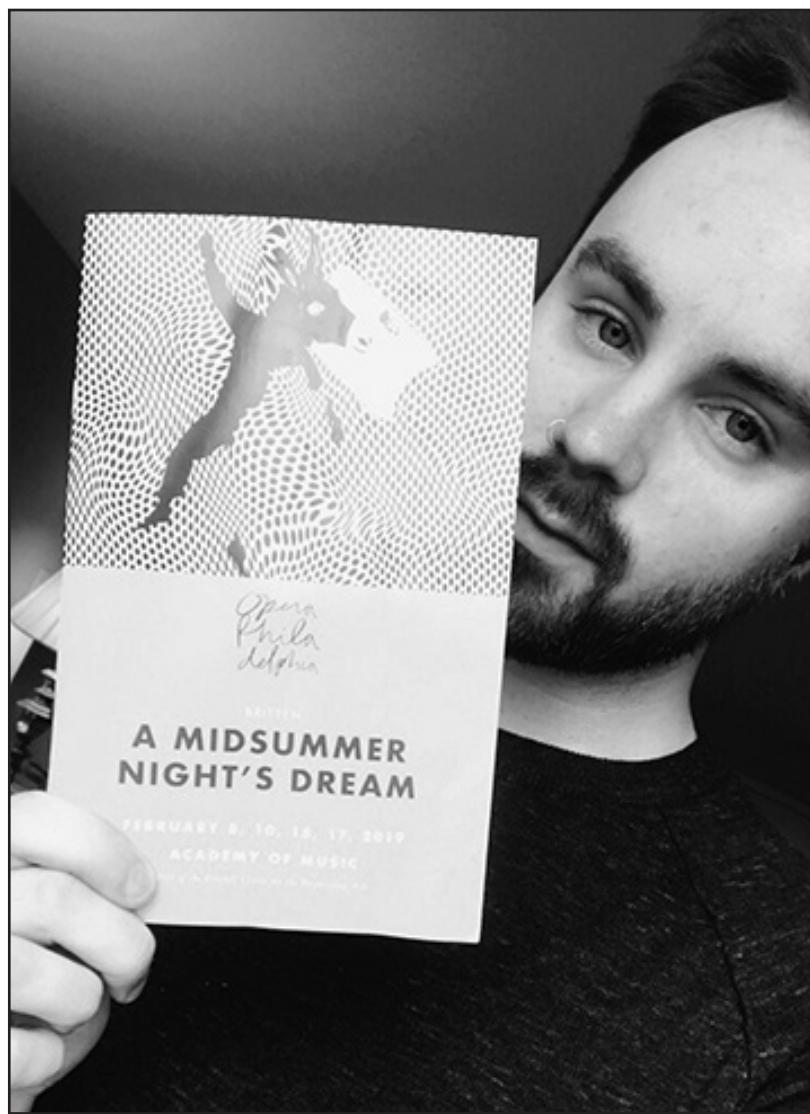 Opera
Phila
delphia
BRITTEN
A MIDSUMMER
NIGHT'S DREAM
FEBRUARY 8, 10, 15, 17, 2019
ACADEMY OF MUSIC